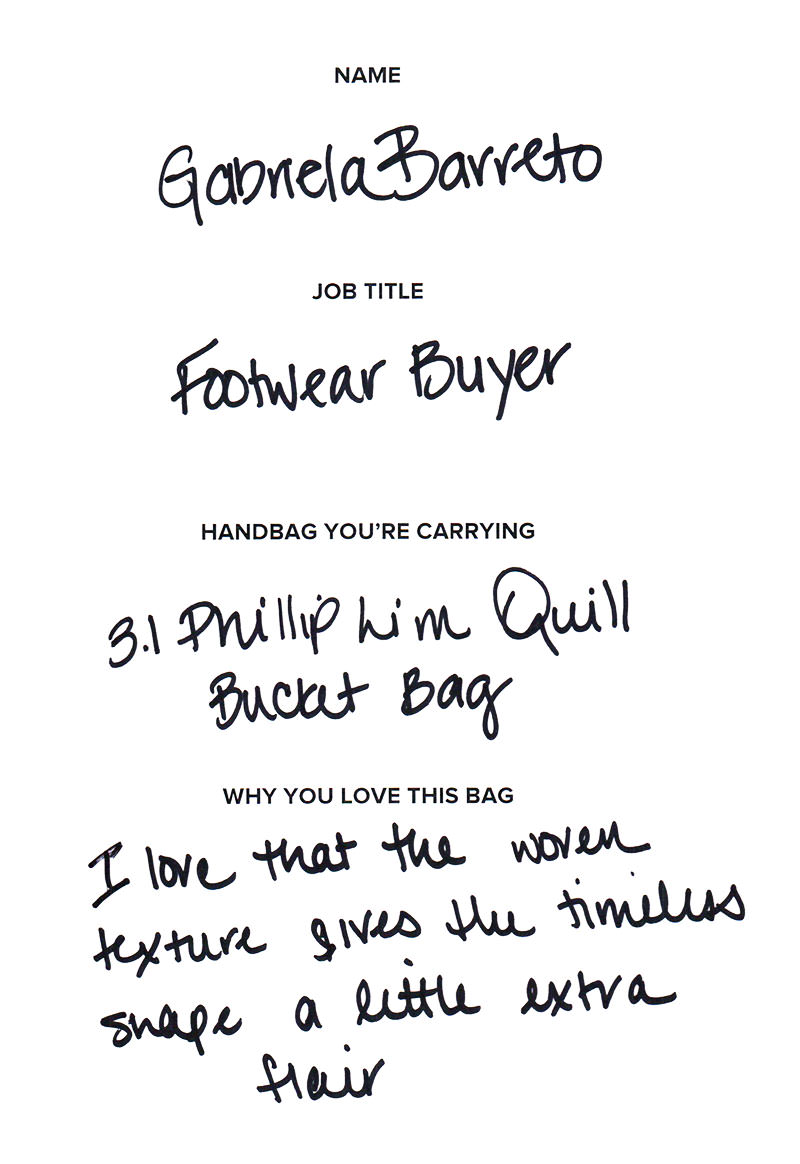 NAME
Gabriela Barreto
JOB TITLE
Footwear Buyer
HANDBAG YOU'RE CARRYING
3.1 Phillip Lim Quill
Bucket Bag
WHY YOU LOVE THIS BAG
I love that the woven
texture gives the timeless
shape a little extra
flair